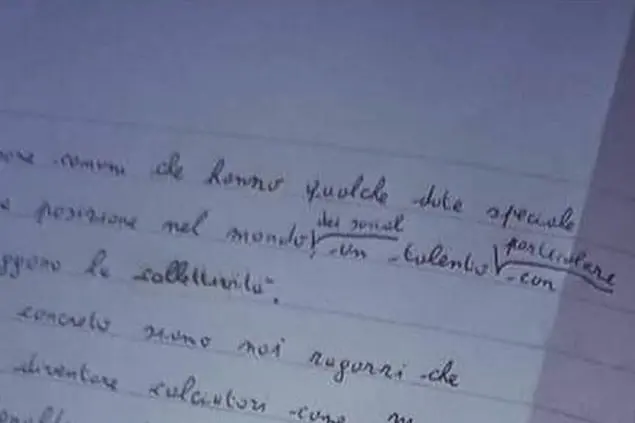 comuni che hanno qualche dote speciale
a posizione nel mondo, dei social un talento particolare con
ggono la collettività".
concreto siamo noi ragazzi che
diventare calciatori come